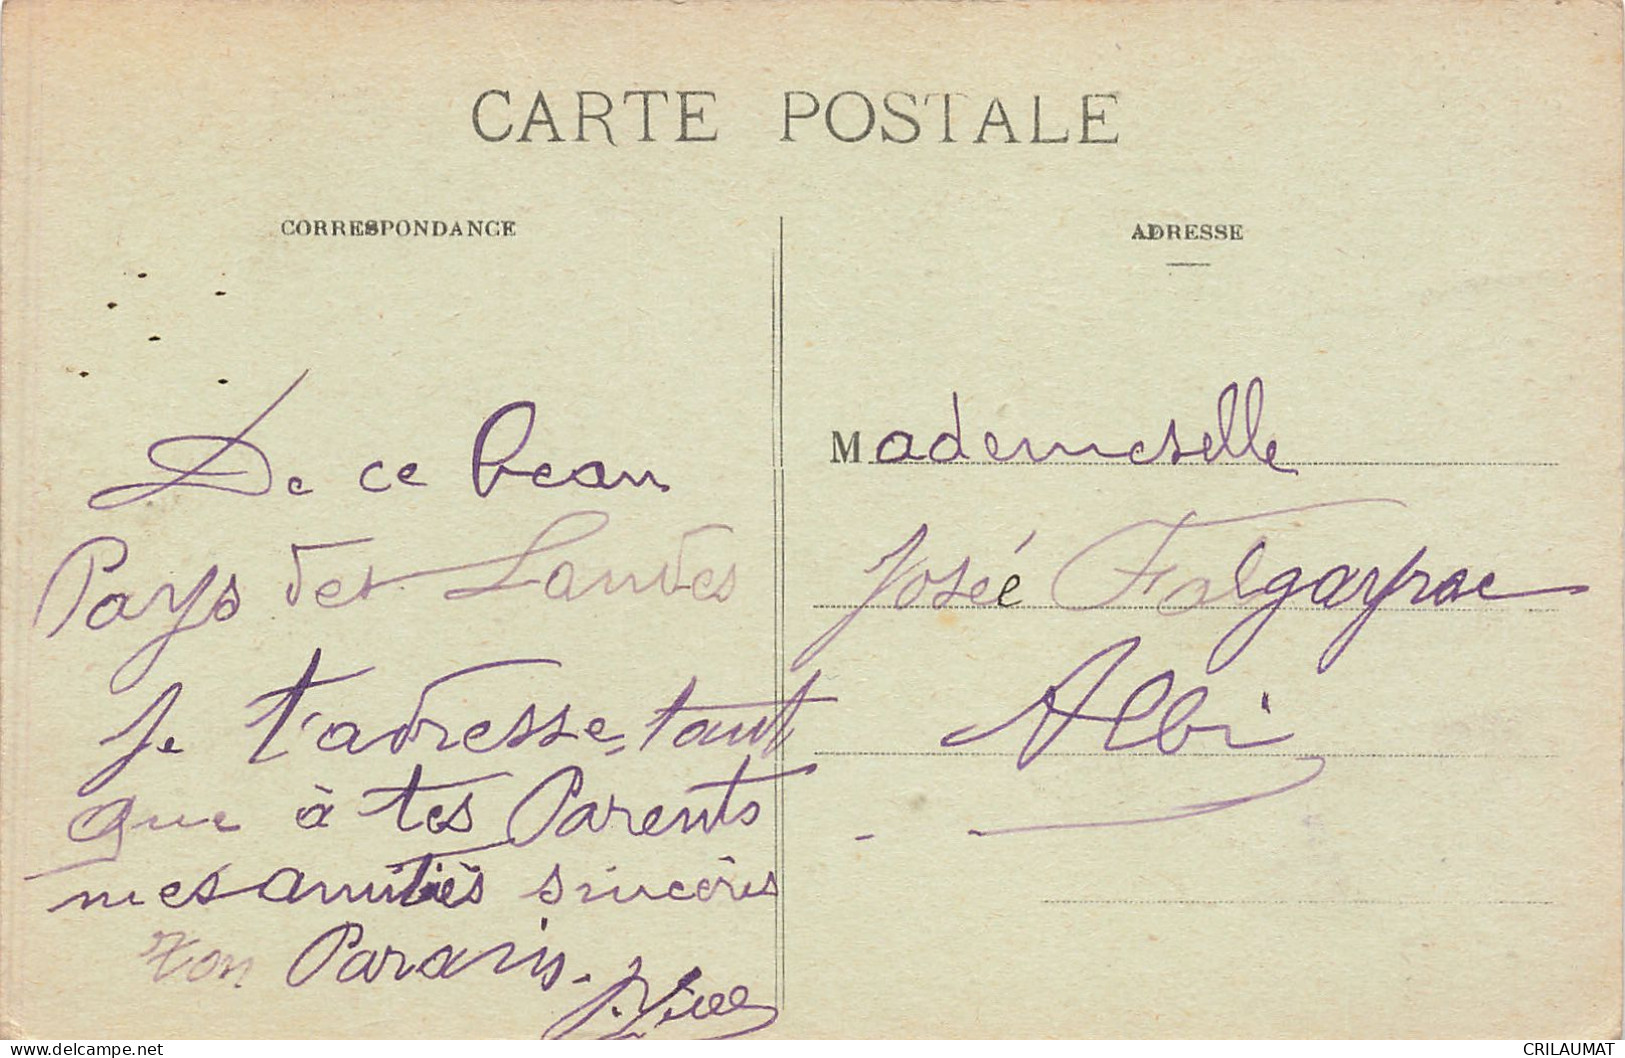 CARTE POSTALE
CORRESPONDANCE
ADRESSE
De ce beau
Pays des Landes
Je t'adresse, tant
que à tes Parents
mes amitiès sincères
ton Parain.
Mademeselle
Josée Falgayrac
Albi
delcampe.net
CRILAUMAT